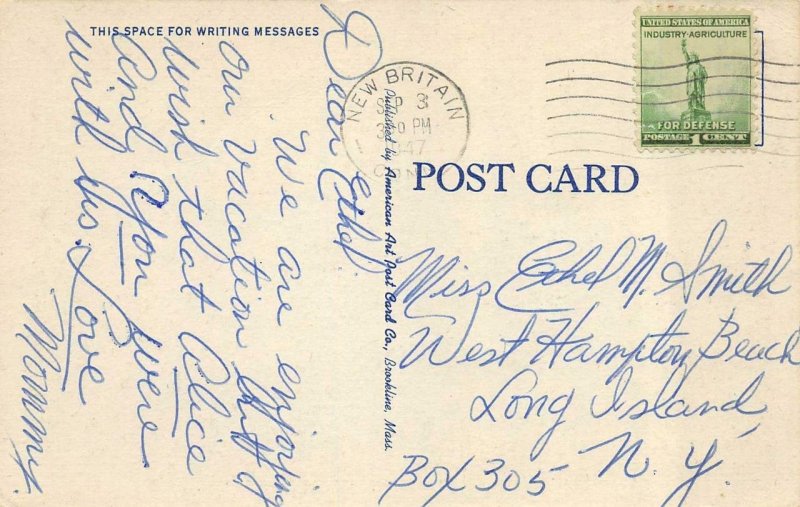 THIS SPACE FOR WRITING MESSAGES
Dear Ethel,
We are enjoying
our Vacation but
wish that Alice
And You were
with us. Love
Mommy.
Published by American Art Post Card Co., Brookline, Mass.
NEW BRITAIN
SEP 3
PM
1947
CONN
UNITED STATES OF AMERICA
INDUSTRY-AGRICULTURE
FOR DEFENSE
POSTAGE 1 CENT
POST CARD
Miss Ethel M. Smith
West Hampton Beach
Long Island
Box 305 N.Y.